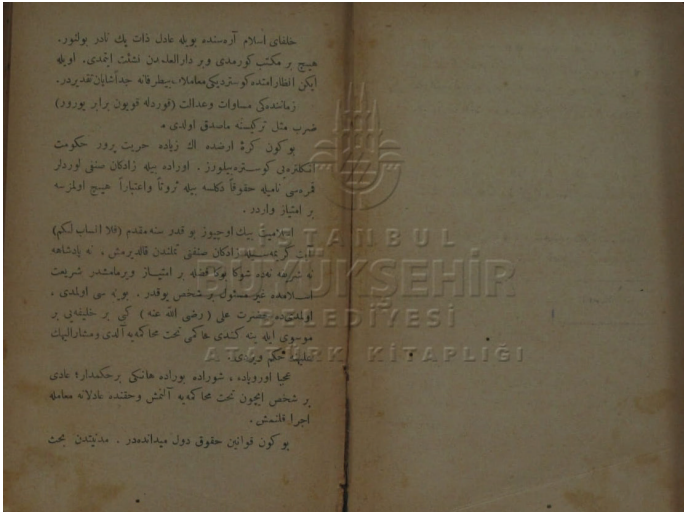 خلفای اسلام آره‌سنده بویله عادل ذات پك نادر بولنور.
هیچ بر مكتب كورمدی وبر دارالعلمدن نشئت ایتمدی. اویله
ایكن انظار امتده كوستردیكی معاملات بیطرفانه جداً شایان تقدیردر.
زماننده‌كی مساوات وعدالت (قوردله قویون برابر یورور)
ضرب مثل تركیسنه ماصدق اولدی.
بو كون كرۀ ارضده اك زیاده حریت پرور حكومت
انكلتره‌یی كوستره بیلورز. اوراده بیله زادكان صنفی لوردلر
قمره‌سی نامیله حقوقاً دكلسه بیله ثروتاً واعتباراً هیچ اولمزسه
بر امتیاز واردر.
اسلامیت بیك اوچیوز بو قدر سنه مقدم (فلا انساب لكم)
زادكان صنفنی تملندن قالدیرمش، نه پادشاهه
نه شریفه نه‌ده شوكا بوكا فضله بر امتیاز ویرمامشدر شریعت
اسلامده غیر مسئول بر شخص یوقدر. بویله‌سی اولمدی،
حضرت علی (رضی الله عنه) كبی بر خلیفه‌یی بر
موسوی ایله ینه كندی حاكمی تحت محاكمه‌یه آلدی ومشارالیهك
حكم ویردی.
عجبا اوروپاده، شوراده بوراده هانكی بر حكمدار؛ عادی
بر شخص ایچون تحت محاكمه‌یه آلنمش وحقنده عادلانه معامله
اجرا قلنمش.
بو كون قوانین حقوق دول میدانده‌در. مدنیتدن بحث
İSTANBUL
BÜYÜKŞEHİR
BELEDİYESİ
ATATÜRK KİTAPLIĞI